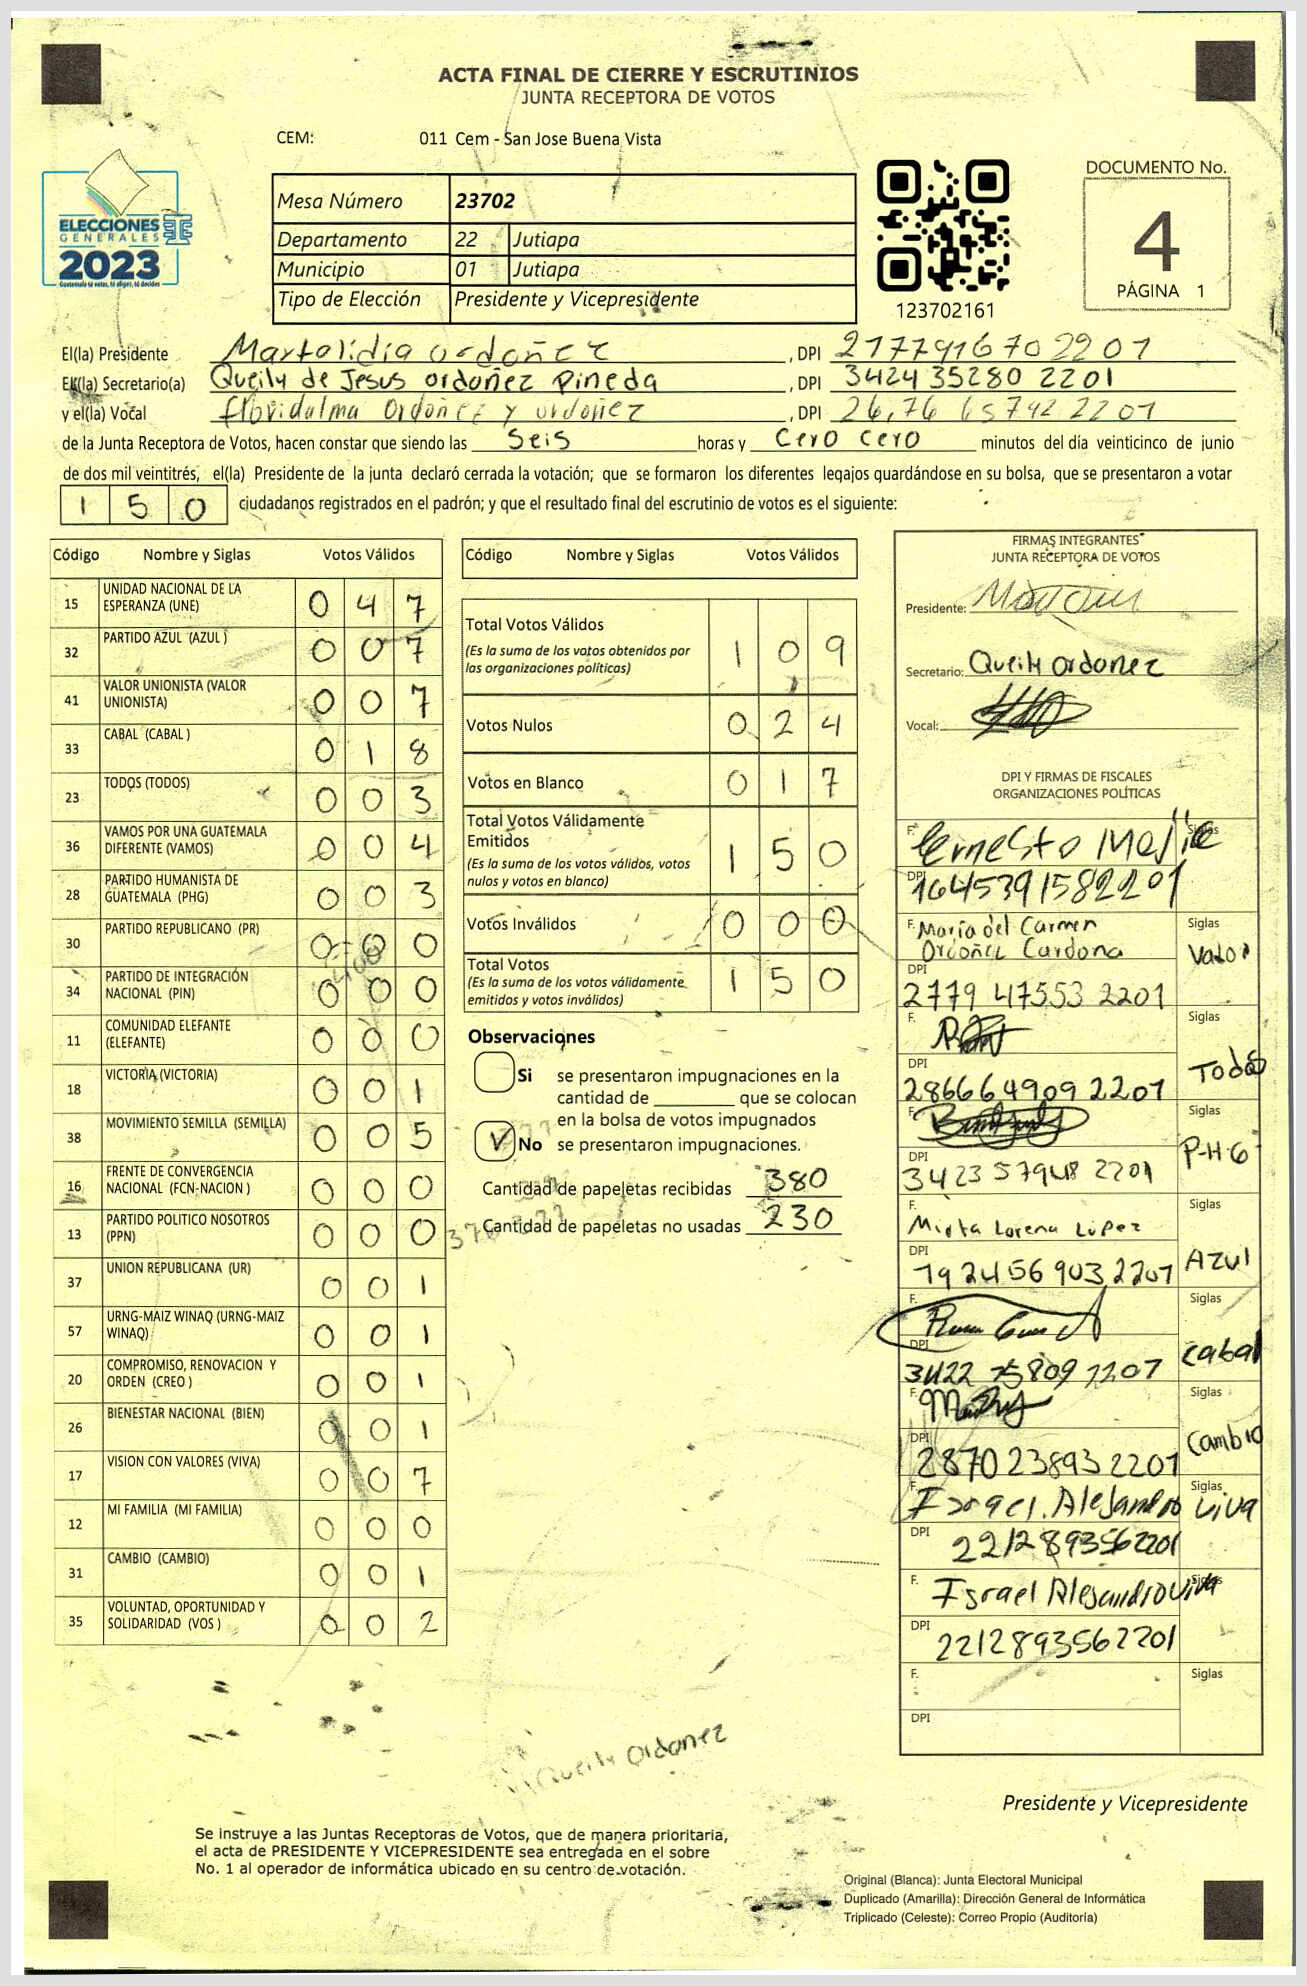 ACTA FINAL DE CIERRE Y ESCRUTINIOS
JUNTA RECEPTORA DE VOTOS
CEM: 011 Cem - San Jose Buena Vista
ELECCIONES
GENERALES
2023
Guatemala tú votas, tú eliges, tú decides
Mesa Número 23702
Departamento 22 Jutiapa
Municipio 01 Jutiapa
Tipo de Elección Presidente y Vicepresidente
123702161
DOCUMENTO No.
4
PÁGINA 1
El(la) Presidente Martalidia ordoñez , DPI 2177916702201
El(la) Secretario(a) Queily de Jesus ordoñez Pineda , DPI 3424 35280 2201
y el(la) Vocal floridalma Ordoñez y ordoñez , DPI 26,76 65742 2201
de la Junta Receptora de Votos, hacen constar que siendo las Seis horas y Cero Cero minutos del día veinticinco de junio
de dos mil veintitrés, el(la) Presidente de la junta declaró cerrada la votación; que se formaron los diferentes legajos guardándose en su bolsa, que se presentaron a votar
1 5 0 ciudadanos registrados en el padrón; y que el resultado final del escrutinio de votos es el siguiente:
Código Nombre y Siglas Votos Válidos
15 UNIDAD NACIONAL DE LA ESPERANZA (UNE) 0 4 7
32 PARTIDO AZUL (AZUL ) 0 0 7
41 VALOR UNIONISTA (VALOR UNIONISTA) 0 0 7
33 CABAL (CABAL ) 0 1 8
23 TODOS (TODOS) 0 0 3
36 VAMOS POR UNA GUATEMALA DIFERENTE (VAMOS) 0 0 4
28 PARTIDO HUMANISTA DE GUATEMALA (PHG) 0 0 3
30 PARTIDO REPUBLICANO (PR) 0 0 0
34 PARTIDO DE INTEGRACIÓN NACIONAL (PIN) 0 0 0
11 COMUNIDAD ELEFANTE (ELEFANTE) 0 0 0
18 VICTORIA (VICTORIA) 0 0 1
38 MOVIMIENTO SEMILLA (SEMILLA) 0 0 5
16 FRENTE DE CONVERGENCIA NACIONAL (FCN-NACION ) 0 0 0
13 PARTIDO POLITICO NOSOTROS (PPN) 0 0 0
37 UNION REPUBLICANA (UR) 0 0 1
57 URNG-MAIZ WINAQ (URNG-MAIZ WINAQ) 0 0 1
20 COMPROMISO, RENOVACION Y ORDEN (CREO ) 0 0 1
26 BIENESTAR NACIONAL (BIEN) 0 0 1
17 VISION CON VALORES (VIVA) 0 0 7
12 MI FAMILIA (MI FAMILIA) 0 0 0
31 CAMBIO (CAMBIO) 0 0 1
35 VOLUNTAD, OPORTUNIDAD Y SOLIDARIDAD (VOS ) 0 0 2
Código Nombre y Siglas Votos Válidos
Total Votos Válidos 1 0 9
(Es la suma de los votos obtenidos por
las organizaciones políticas)
Votos Nulos 0 2 4
Votos en Blanco 0 1 7
Total Votos Válidamente
Emitidos 1 5 0
(Es la suma de los votos válidos, votos
nulos y votos en blanco)
Votos Inválidos 0 0 0
Total Votos 1 5 0
(Es la suma de los votos válidamente
emitidos y votos inválidos)
Observaciones
Si se presentaron impugnaciones en la
cantidad de ________ que se colocan
en la bolsa de votos impugnados
V No se presentaron impugnaciones.
Cantidad de papeletas recibidas 380
Cantidad de papeletas no usadas 230
FIRMAS INTEGRANTES
JUNTA RECEPTORA DE VOTOS
Presidente:
Secretario: Queily ordoñez
Vocal:
DPI Y FIRMAS DE FISCALES
ORGANIZACIONES POLÍTICAS
F. Ernesto Mejia Siglas
DPI 1645391582201
F. Maria del Carmen Siglas
Ordoñez Cardona Valor
DPI
2779 47553 2201
F. Siglas
DPI Todos
286664909 2201
F. Siglas
DPI P-H-G
3423 57948 2201
F. Mirta Lorena López Siglas
DPI Azul
1924569032201
F. Siglas
DPI Cabal
3422 75809 2207
F. Siglas
DPI Cambio
2870 23893 2201
F. Israel. Alejandro Siglas viva
DPI
2212893562201
F. Israel Alejandro viva Siglas
DPI
2212893562201
F. Siglas
DPI
Queily Ordoñez
Presidente y Vicepresidente
Se instruye a las Juntas Receptoras de Votos, que de manera prioritaria,
el acta de PRESIDENTE Y VICEPRESIDENTE sea entregada en el sobre
No. 1 al operador de informática ubicado en su centro de votación.
Original (Blanca): Junta Electoral Municipal
Duplicado (Amarilla): Dirección General de Informática
Triplicado (Celeste): Correo Propio (Auditoría)